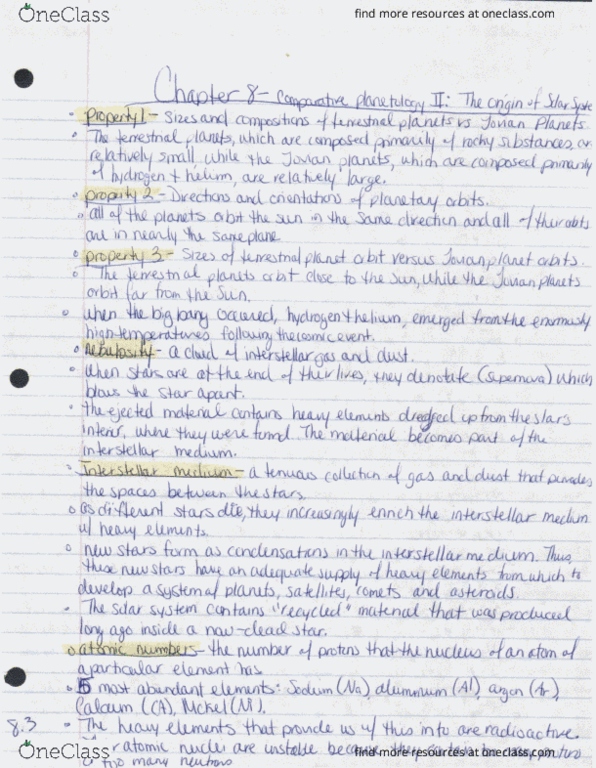 OneClass
find more resources at oneclass.com
Chapter 8 - Comparative planetology II: The origin of Solar Syste
Property 1 - Sizes and compositions of terrestrial planets vs Jovian Planets.
The terrestrial planets, which are composed primarily of rocky substances, are
relatively small while the Jovian planets, which are composed primarily
of hydrogen + helium, are relatively large.
property 2 - Directions and orientations of planetary orbits.
all of the planets orbit the sun in the same direction and all of their orbits
are in nearly the same plane
property 3 - Sizes of terrestrial planet orbit versus Jovian planet orbits.
The terrestrial planets orbit close to the Sun, while the Jovian planets
orbit far from the Sun.
when the big bang occured, hydrogen + helium, emerged from the enormously
high temperatures following the cosmic event.
nebulosity - a cloud of interstellar gas and dust.
when stars are at the end of their lives, they detonate (supernova) which
blows the star apart.
the ejected material contains heavy elements dredged up from the stars
interior, where they were formed. The material becomes part of the
interstellar medium.
Interstellar medium - a tenuous collection of gas and dust that pervades
the spaces between the stars.
as different stars die, they increasingly enrich the interstellar medium
w/ heavy elements.
new stars form as condensations in the interstellar medium. Thus,
these new stars have an adequate supply of heavy elements from which to
develop a system of planets, satellites, comets and asteroids.
The solar system contains "recycled" material that was produced
long ago inside a now-dead star.
atomic numbers - the number of protons that the nucleus of an atom of
a particular element has
5 most abundant elements: Sodium (Na), aluminum (Al), argon (Ar),
Calcium (CA), Nickel (Ni).
8.3 The heavy elements that provide us w/ this info are radioactive.
atomic nuclei are unstable because they contain too many protons
or too many neutrons
OneClass
find more resources at oneclass.com